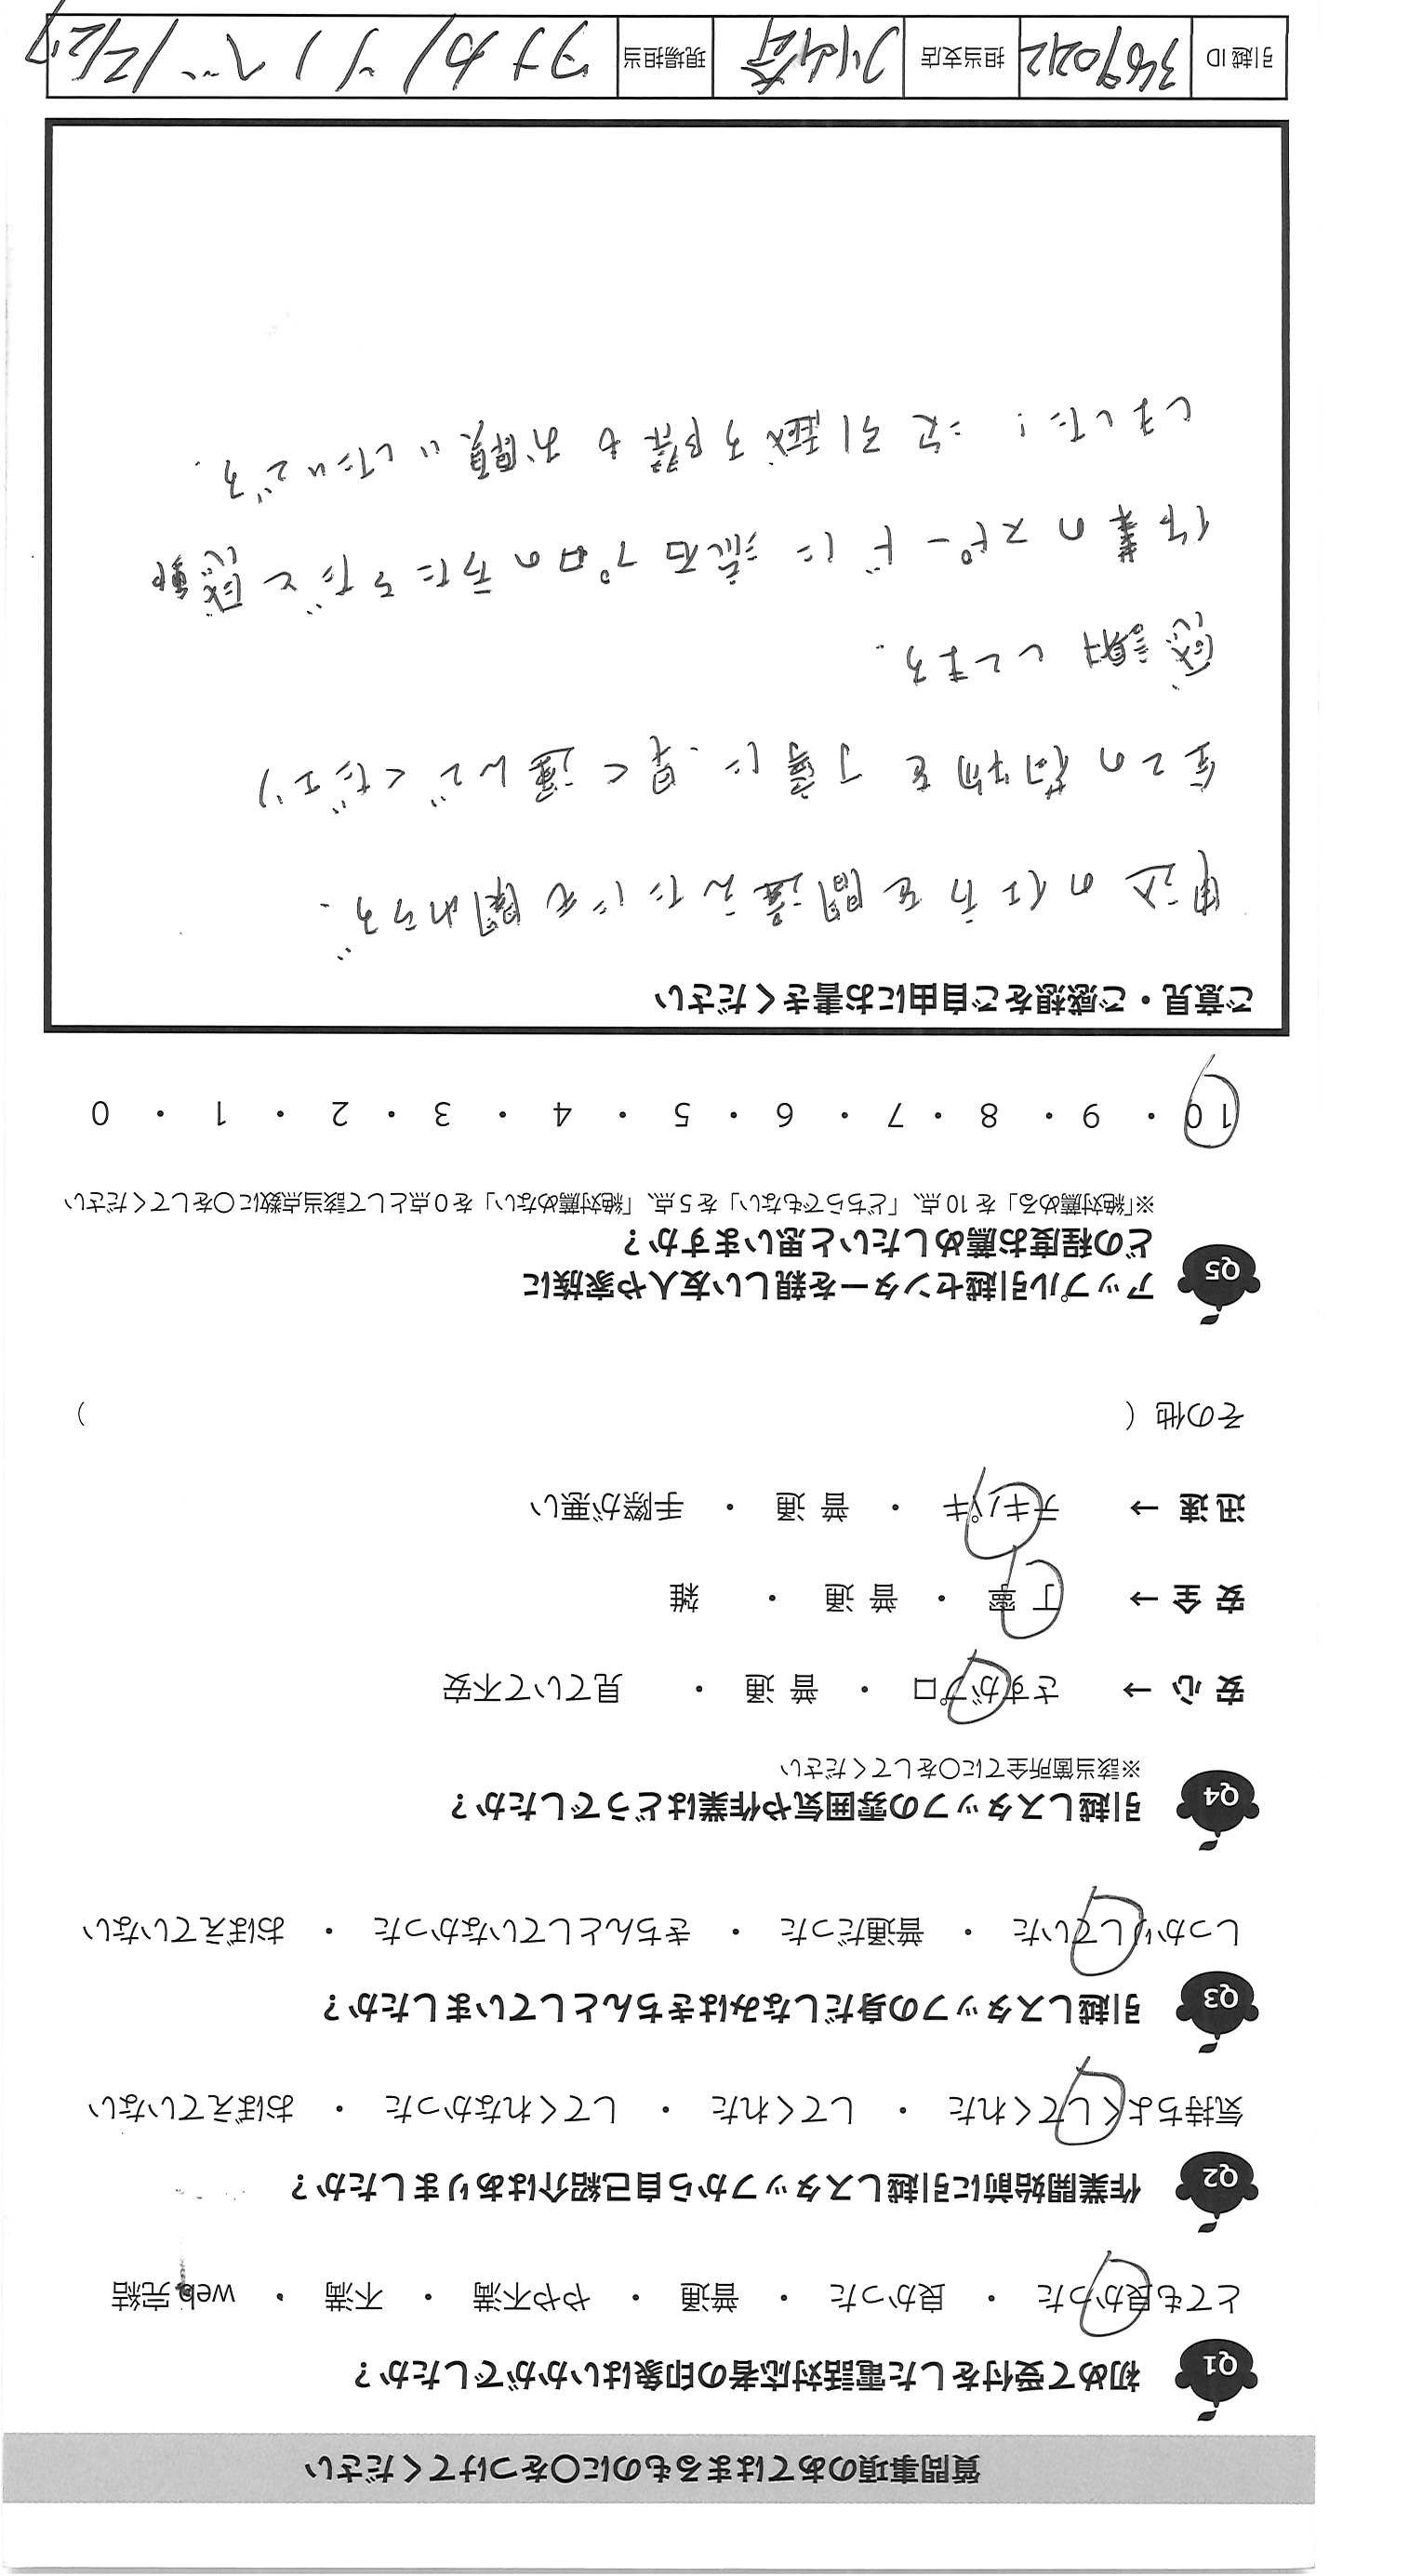 質問事項のあてはまるものに〇をつけてください
Q1 初めて受付をした電話対応者の印象はいかがでしたか？
とても良かった ・ 良かった ・ 普通 ・ やや不満 ・ 不満 ・ web完結
Q2 作業開始前に引越しスタッフから自己紹介はありましたか？
気持ちよくしてくれた ・ してくれた ・ してくれなかった ・ おぼえていない
Q3 引越しスタッフの身だしなみはきちんとしていましたか？
しっかりしていた ・ 普通だった ・ きちんとしていなかった ・ おぼえていない
Q4 引越しスタッフの雰囲気や作業はどうでしたか？
※該当箇所全てに〇をしてください
安心 → さすがプロ ・ 普通 ・ 見ていて不安
安全 → 丁寧 ・ 普通 ・ 雑
迅速 → テキパキ ・ 普通 ・ 手際が悪い
その他（ ）
Q5 アップル引越センターを親しい友人や家族に
どの程度お薦めしたいと思いますか？
※「絶対薦める」を10点、「どちらでもない」を5点、「絶対薦めない」を0点として該当点数に〇をしてください
10 ・ 9 ・ 8 ・ 7 ・ 6 ・ 5 ・ 4 ・ 3 ・ 2 ・ 1 ・ 0
ご意見・ご感想をご自由にお書きください
申込の仕方を間違えたにも関わらず、
全ての荷物を丁寧に、早く運んでくださり
感謝してます。
作業のスピードに流石プロの方たちだと感動
しました！ 次引越す際もお願いしたいです。
引越ID 3689042 担当支店 川崎 現場担当 12/27